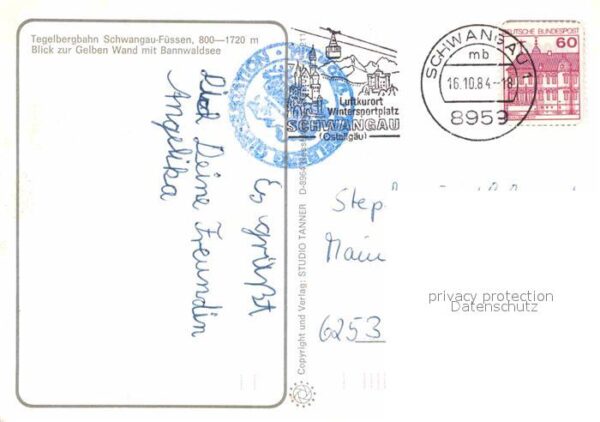 Tegelbergbahn Schwangau-Füssen, 800—1720 m
Blick zur Gelben Wand mit Bannwaldsee
Es grüßt
Deine Freundin
Angelika
Copyright und Verlag: STUDIO TANNER D-8964
Luftkurort
Wintersportplatz
SCHWANGAU
(Ostallgäu)
SCHWANGAU 1
mb
16.10.84-18
8959
DEUTSCHE BUNDESPOST
60
Step
Main
6253
privacy protection
Datenschutz